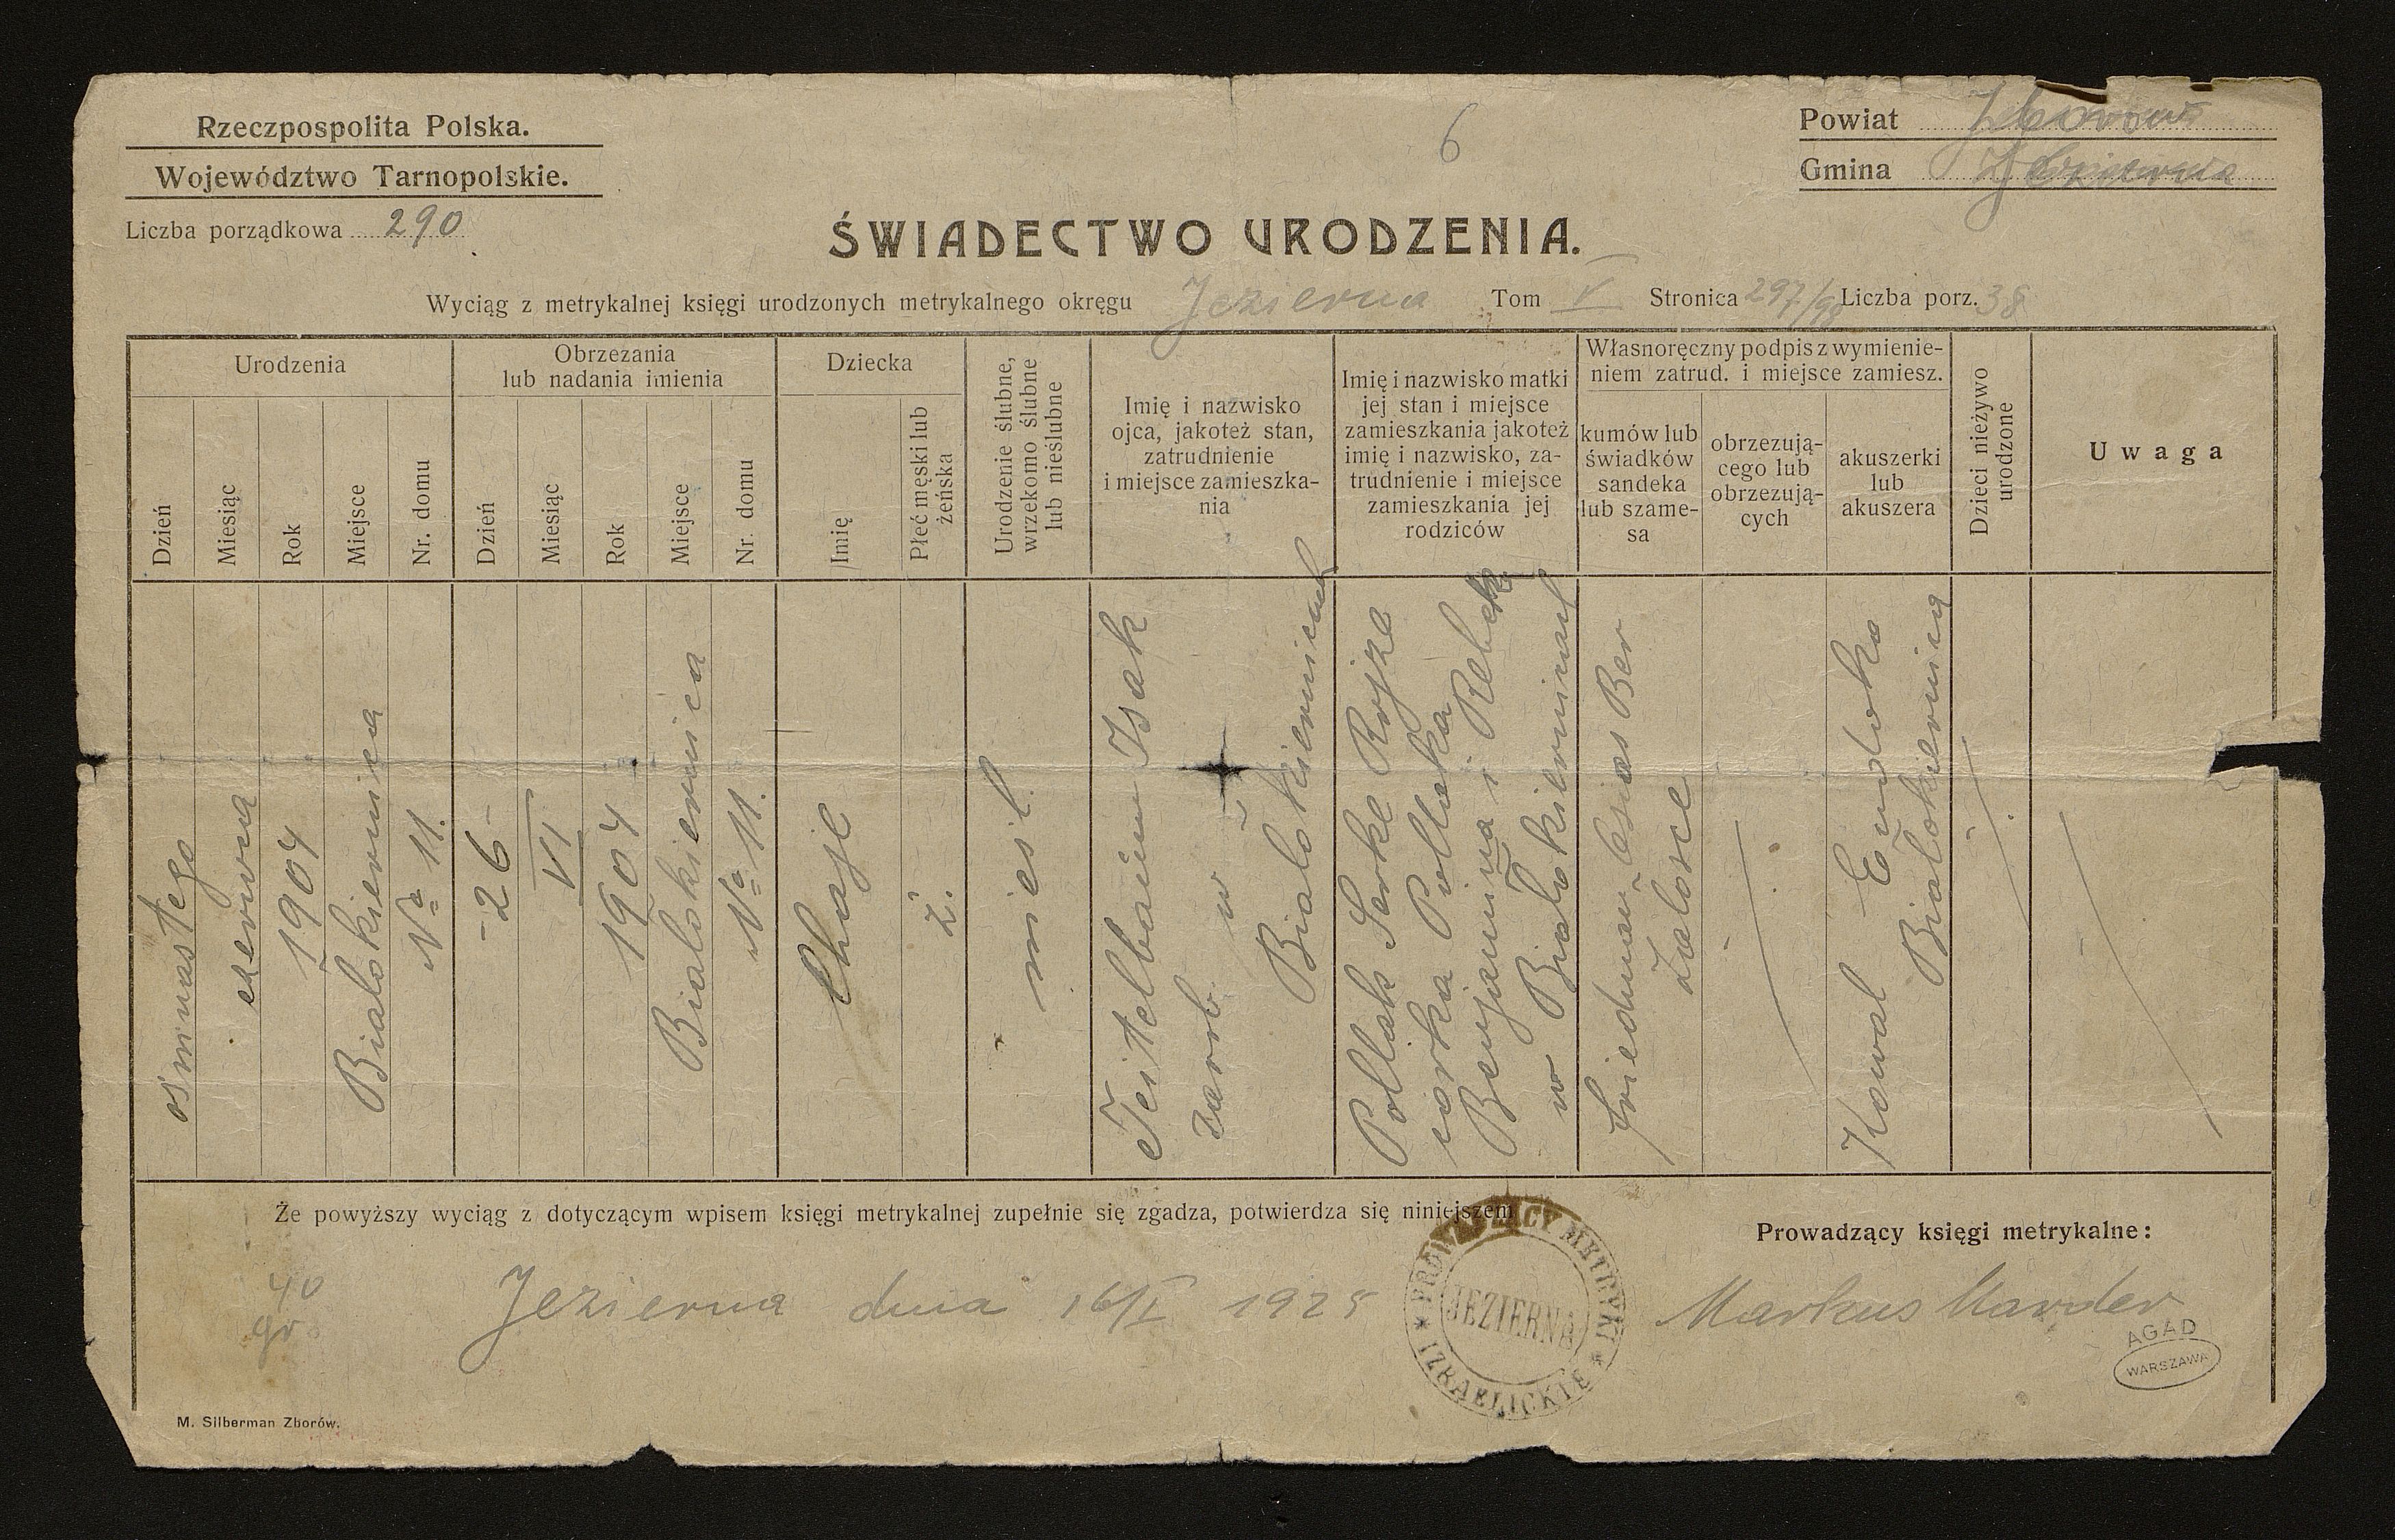 Rzeczpospolita Polska.
Województwo Tarnopolskie.
Liczba porządkowa 290
6
Powiat
Gmina
ŚWIADECTWO URODZENIA.
Wyciąg z metrykalnej księgi urodzonych metrykalnego okręgu Jezierna Tom V Stronica 297/98 Liczba porz. 38
Urodzenia
Dzień
Miesiąc
Rok
Miejsce
Nr. domu
Obrzezania
lub nadania imienia
Dzień
Miesiąc
Rok
Miejsce
Nr. domu
Dziecka
Imię
Płeć męski lub
żeńska
Urodzenie ślubne,
wrzekomo ślubne
lub nieślubne
Imię i nazwisko
ojca, jakoteż stan,
zatrudnienie
i miejsce zamieszka-
nia
Imię i nazwisko matki
jej stan i miejsce
zamieszkania jakoteż
imię i nazwisko, za-
trudnienie i miejsce
zamieszkania jej
rodziców
Własnoręczny podpis z wymienie-
niem zatrud. i miejsce zamiesz.
kumów lub
świadków
sandeka
lub szame-
sa
obrzezują-
cego lub
obrzezują-
cych
akuszerki
lub
akuszera
Dzieci nieżywo
urodzone
Uwaga
osmnastego
czerwca
1904
Białokiernica
No 11.
-26-
VI
1904
Białokiernica
No 11.
Chaje
ż.
nieśl.
Teitelbaum Isak
zarob. w
Białokiernicach
Pollak Serke Rojze
córka Pollaka
Benjamina i Rebeki
w Białokiernicach
Friedman Osias Ber
Załosce
Kowal Eudoka
Białokiernica
Że powyższy wyciąg z dotyczącym wpisem księgi metrykalnej zupełnie się zgadza, potwierdza się niniejszem
Prowadzący księgi metrykalne:
40
gr
Jezierna dnia 16/I 1925
PROWADZĄCY METRYKI
IZRAELICKIE
JEZIERNA
Markus Marder
AGAD
WARSZAWA
M. Silberman Zborów.